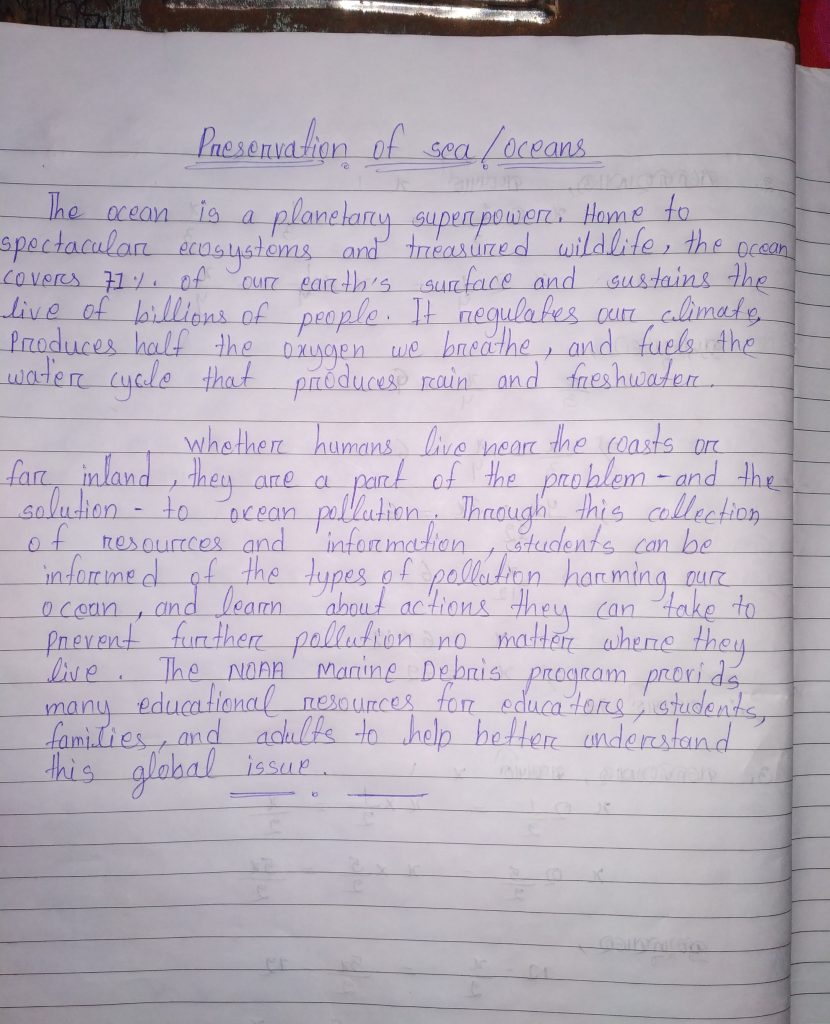 Preservation of sea/oceans
The ocean is a planetary superpower. Home to
spectacular ecosystems and treasured wildlife, the ocean
covers 71%. of our earth's surface and sustains the
live of billions of people. It regulates our climate,
Produces half the oxygen we breathe, and fuels the
water cycle that produces rain and freshwater.
Whether humans live near the coasts or
far inland, they are a part of the problem - and the
solution - to ocean pollution. Through this collection
of resources and information, students can be
informed of the types of pollution harming our
ocean, and learn about actions they can take to
prevent further pollution no matter where they
live. The NOAA Marine Debris program provids
many educational resources for educators, students,
families, and adults to help better understand
this global issue.